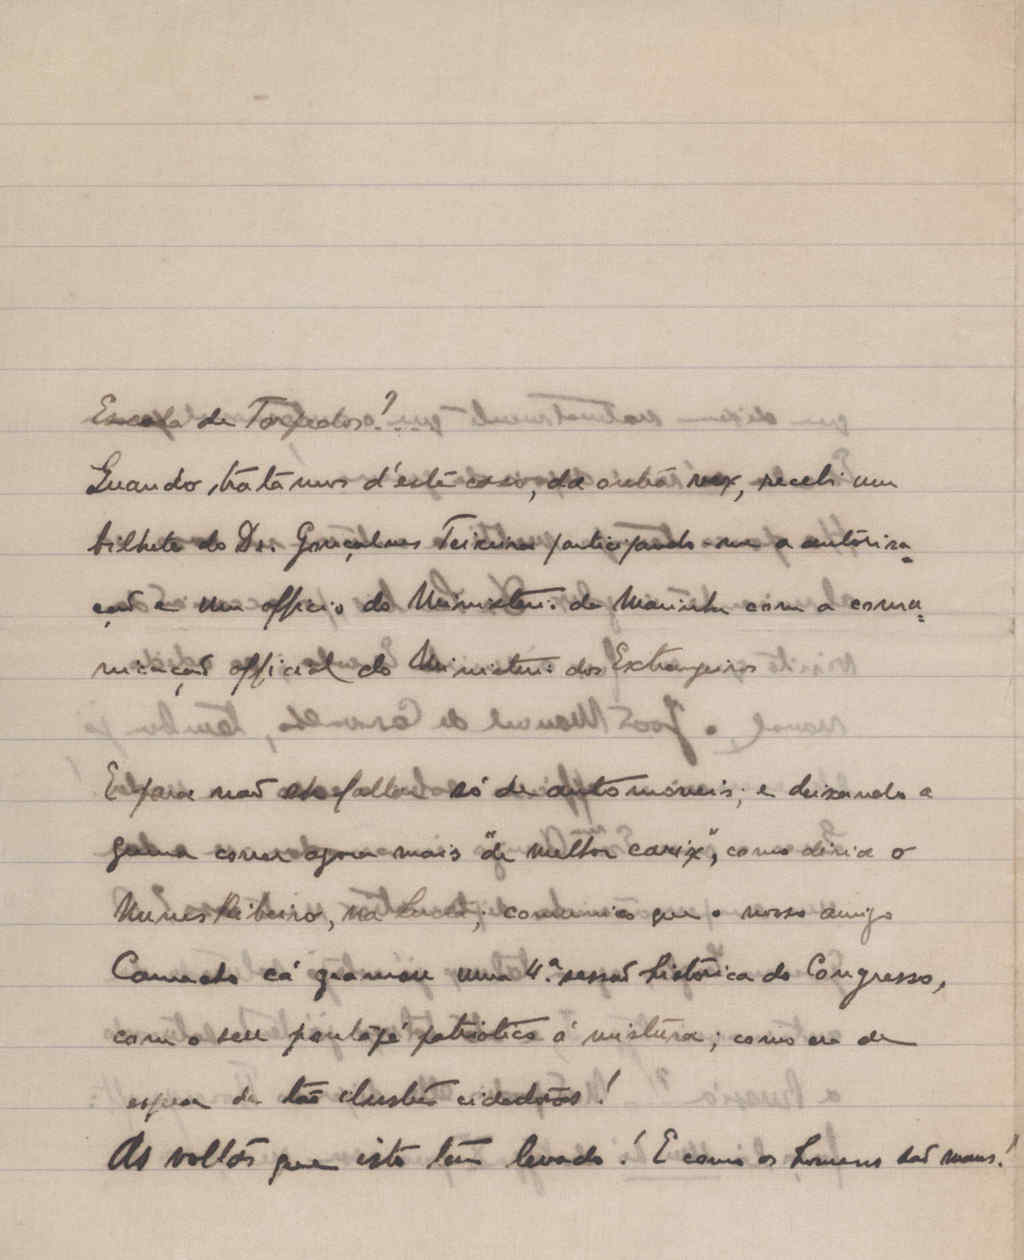 Escola de Torpedos!?..
Quando tratámos d'este caso, da outra vez, recebi um
bilhete do Dr. Gonçalves Teixeira participando-me a autorisa-
ção e um officio do Ministerio da Marinha com a comu-
nicação official do Ministerio dos Extrangeiros
E para não fallar só de automoveis; e deixando a
correr agora mais "de melhor carix", como diria o
Nunes Ribeiro, na; comunico que o nosso amigo
Camacho cá gramou uma 4.ª sessão historica do Congresso,
com o seu pontapé patriótico á mistura; como era de
esperar de tão illustres cidadãos!
As voltas que isto tem levado! E como os homens são maus!